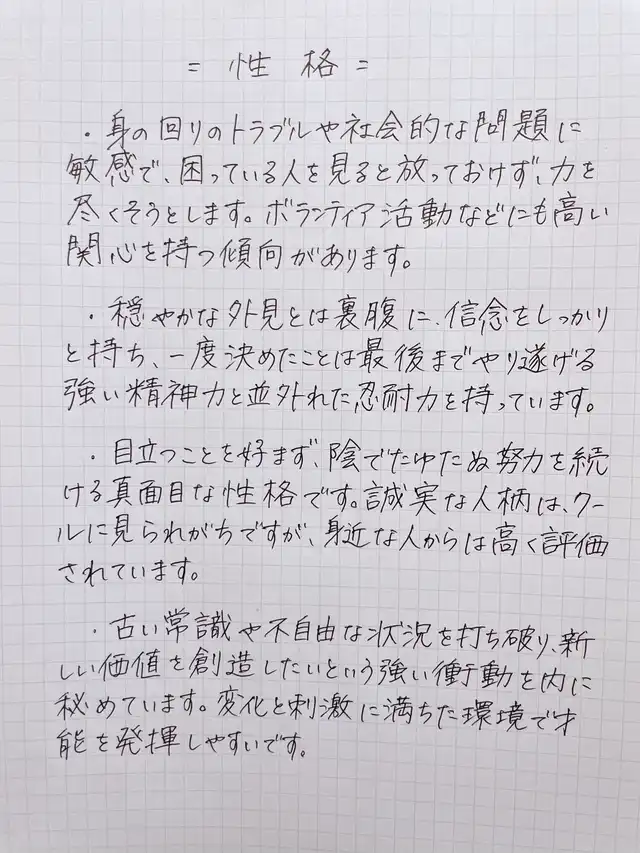 = 性 格 =
・身の回りのトラブルや社会的な問題に
敏感で、困っている人を見ると放っておけず、力を
尽くそうとします。ボランティア活動などにも高い
関心を持つ傾向があります。
・穏やかな外見とは裏腹に、信念をしっかり
と持ち、一度決めたことは最後までやり遂げる
強い精神力と並外れた忍耐力を持っています。
・目立つことを好まず、陰でたゆたぬ努力を続
ける真面目な性格です。誠実な人柄は、クー
ルに見られがちですが、身近な人からは高く評価
されています。
・古い常識や不自由な状況を打ち破り、新
しい価値を創造したいという強い衝動を内に
秘めています。変化と刺激に満ちた環境で才
能を発揮しやすいです。